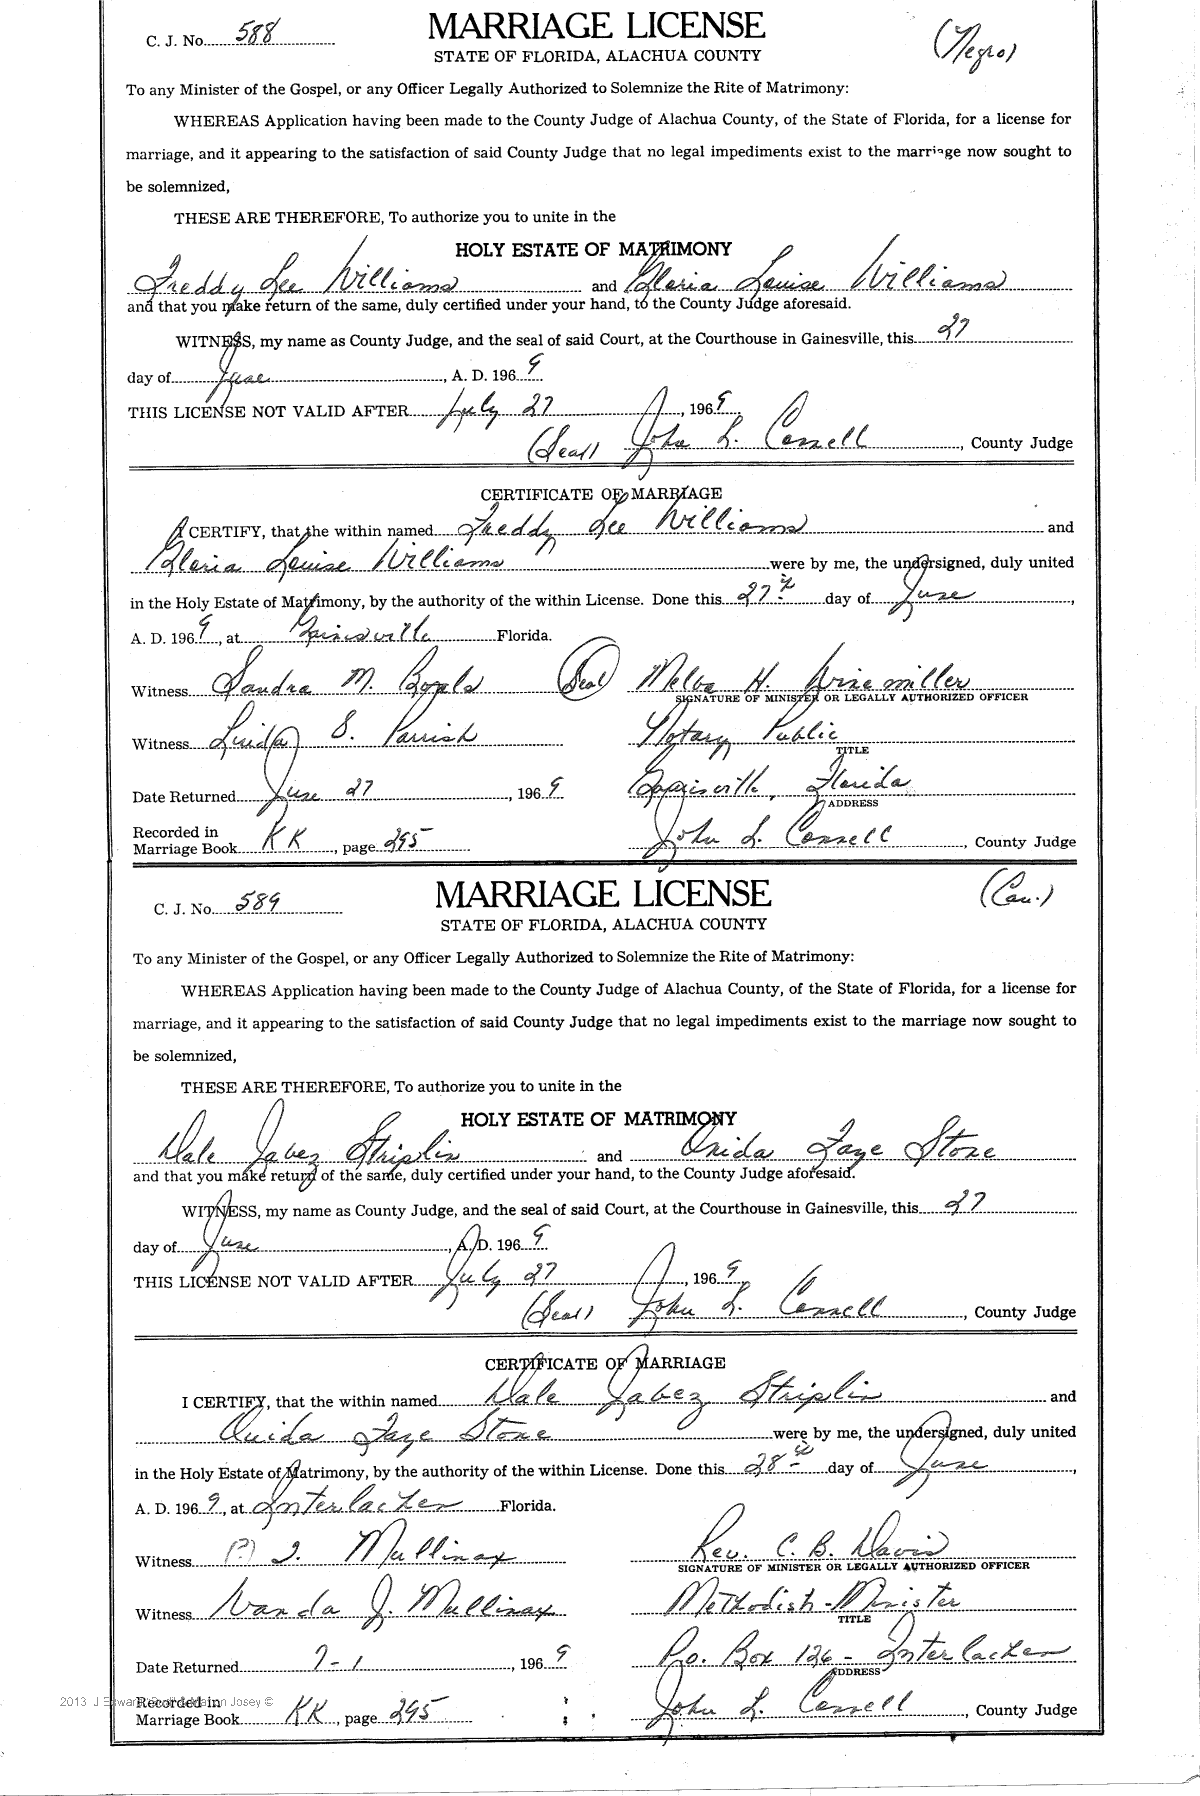 C. J. No. 588 MARRIAGE LICENSE (Negro)
STATE OF FLORIDA, ALACHUA COUNTY
To any Minister of the Gospel, or any Officer Legally Authorized to Solemnize the Rite of Matrimony:
WHEREAS Application having been made to the County Judge of Alachua County, of the State of Florida, for a license for
marriage, and it appearing to the satisfaction of said County Judge that no legal impediments exist to the marriage now sought to
be solemnized,
THESE ARE THEREFORE, To authorize you to unite in the
HOLY ESTATE OF MATRIMONY
Freddy Lee Williams and Gloria Louise Williams
and that you make return of the same, duly certified under your hand, to the County Judge aforesaid.
WITNESS, my name as County Judge, and the seal of said Court, at the Courthouse in Gainesville, this 27
day of June, A. D. 1969
THIS LICENSE NOT VALID AFTER July 27, 1969
(Seal) John L. Connell, County Judge
CERTIFICATE OF MARRIAGE
I CERTIFY, that the within named Freddy Lee Williams and
Gloria Louise Williams were by me, the undersigned, duly united
in the Holy Estate of Matrimony, by the authority of the within License. Done this 27th day of June,
A. D. 1969, at Gainesville Florida.
Witness Sandra M. (Seal) Melba H. Winemiller
SIGNATURE OF MINISTER OR LEGALLY AUTHORIZED OFFICER
Witness Linda S. Parrish Notary Public
TITLE
Date Returned June 27, 1969 Gainesville, Florida
ADDRESS
Recorded in
Marriage Book KK, page 295 John L. Connell, County Judge
C. J. No. 589 MARRIAGE LICENSE (Cau.)
STATE OF FLORIDA, ALACHUA COUNTY
To any Minister of the Gospel, or any Officer Legally Authorized to Solemnize the Rite of Matrimony:
WHEREAS Application having been made to the County Judge of Alachua County, of the State of Florida, for a license for
marriage, and it appearing to the satisfaction of said County Judge that no legal impediments exist to the marriage now sought to
be solemnized,
THESE ARE THEREFORE, To authorize you to unite in the
HOLY ESTATE OF MATRIMONY
Dale Jabez Striplin and Onida Faye Stone
and that you make return of the same, duly certified under your hand, to the County Judge aforesaid.
WITNESS, my name as County Judge, and the seal of said Court, at the Courthouse in Gainesville, this 27
day of June, A. D. 1969
THIS LICENSE NOT VALID AFTER July 27, 1969
(Seal) John L. Connell, County Judge
CERTIFICATE OF MARRIAGE
I CERTIFY, that the within named Dale Jabez Striplin and
Onida Faye Stone were by me, the undersigned, duly united
in the Holy Estate of Matrimony, by the authority of the within License. Done this 28th day of June,
A. D. 1969, at Interlachen Florida.
Witness (?) J. Mullinax Rev. C. B. Davis
SIGNATURE OF MINISTER OR LEGALLY AUTHORIZED OFFICER
Witness Wanda J. Mullinax Methodist-Minister
TITLE
Date Returned 7-1, 1969 P.O. Box 126 - Interlachen
ADDRESS
Recorded in
Marriage Book KK, page 295 John L. Connell, County Judge
2013 J Josey ©